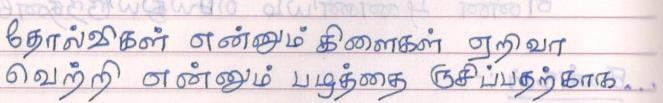 தோல்விகள் என்னும் கிளைகள் ஏறிவா
வெற்றி என்னும் பழத்தை ருசிப்பதற்காக...